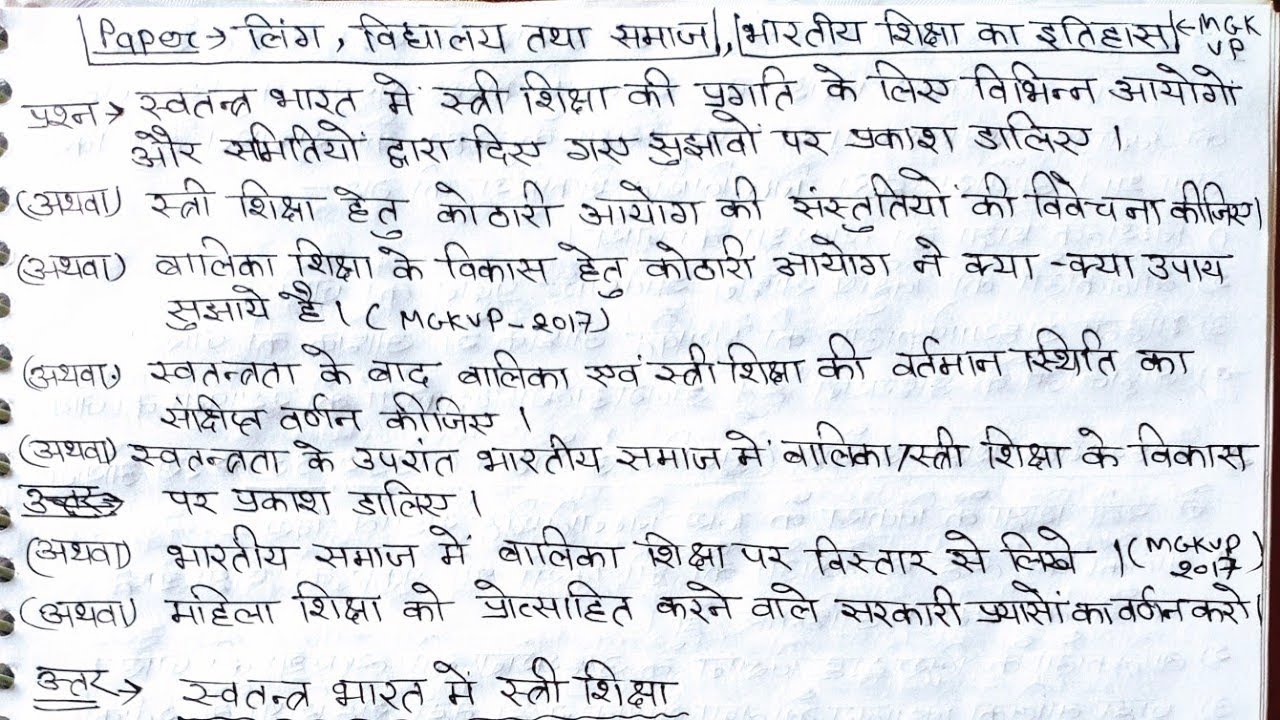 Paper → लिंग, विद्यालय तथा समाज, भारतीय शिक्षा का इतिहास ← MGK
VP
प्रश्न → स्वतन्त्र भारत में स्त्री शिक्षा की प्रगति के लिए विभिन्न आयोगों
और समितियों द्वारा दिए गए सुझावों पर प्रकाश डालिए ।
(अथवा) स्त्री शिक्षा हेतु कोठारी आयोग की संस्तुतियों की विवेचना कीजिए।
(अथवा) बालिका शिक्षा के विकास हेतु कोठारी आयोग ने क्या-क्या उपाय
सुझाये हैं। (MGKVP-2017)
(अथवा) स्वतन्त्रता के बाद बालिका एवं स्त्री शिक्षा की वर्तमान स्थिति का
संक्षिप्त वर्णन कीजिए ।
(अथवा) स्वतन्त्रता के उपरांत भारतीय समाज में बालिका/स्त्री शिक्षा के विकास
पर प्रकाश डालिए ।
(अथवा) भारतीय समाज में बालिका शिक्षा पर विस्तार से लिखे । (MGKVP
2017)
(अथवा) महिला शिक्षा को प्रोत्साहित करने वाले सरकारी प्रयासों का वर्णन करो।
उत्तर → स्वतन्त्र भारत में स्त्री शिक्षा